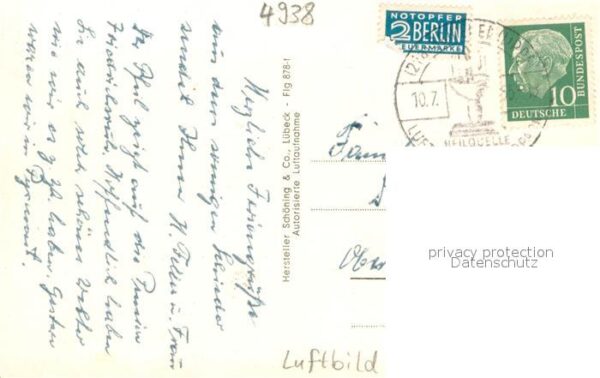 4938
NOTOPFER
2 BERLIN
STEUERMARKE
10.7.
HEILQUELLE
DEUTSCHE
BUNDESPOST
10
Herzliche Feriengrüße
aus dem sonnigen
sendet Ihnen H. u. Frau
Der Pfeil zeigt auf die Pension
Friedrichsruh. Hoffentlich haben
Sie auch solch schönes Wetter
wie wir es z. Zt. haben. Gestern
waren wir in Pyrmont.
Hersteller Schöning & Co., Lübeck - Flg 878-1
Autorisierte Luftaufnahme
Fam
Ober
privacy protection
Datenschutz
Luftbild